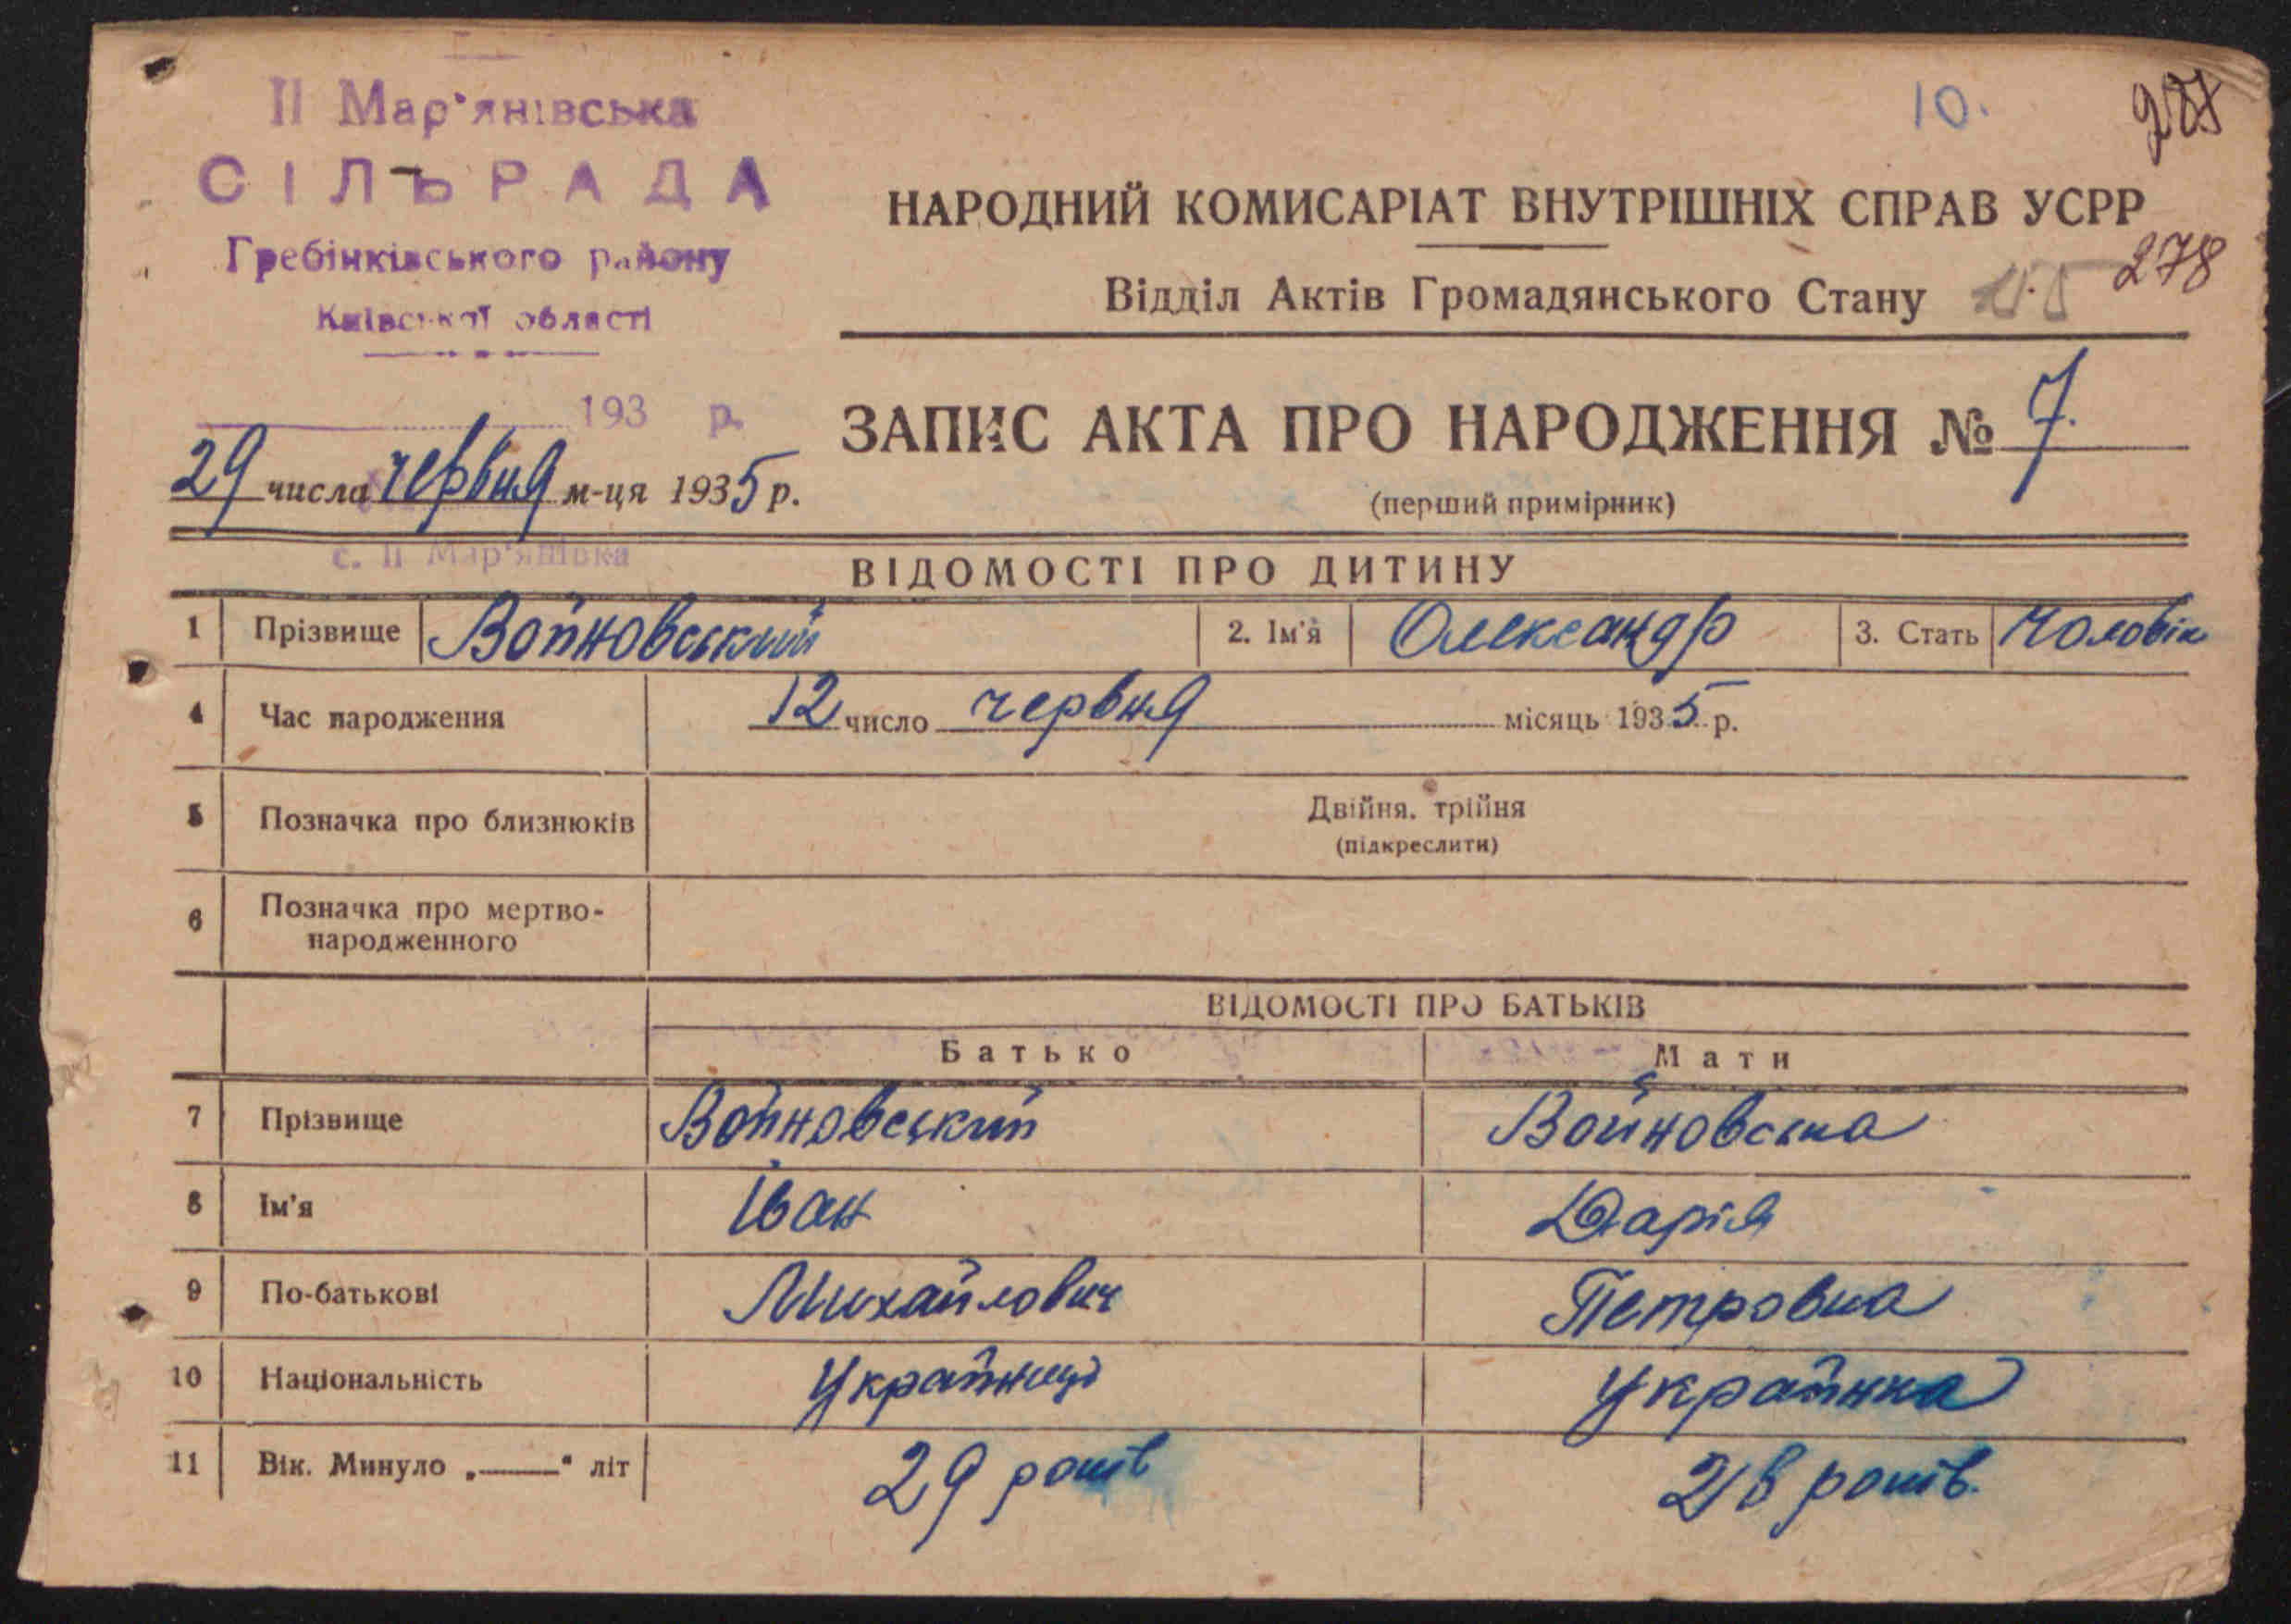 II Мар'янівська
СІЛЬРАДА
Гребінківського району
Київської області
10.
278
НАРОДНИЙ КОМИСАРІАТ ВНУТРІШНІХ СПРАВ УСРР
Відділ Актів Громадянського Стану
193 р.
29 числа червня м-ця 1935 р.
ЗАПИС АКТА ПРО НАРОДЖЕННЯ № 7.
(перший примірник)
с. II Мар'янівка
ВІДОМОСТІ ПРО ДИТИНУ
1 Прізвище Войновський 2. Ім'я Олександр 3. Стать Чоловік
4 Час народження 12 число червня місяць 1935 р.
5 Позначка про близнюків Двійня, трійня
(підкреслити)
6 Позначка про мертво-
народженного
ВІДОМОСТІ ПРО БАТЬКІВ
Батько Мати
7 Прізвище Войновський Войновська
8 Ім'я Іван Дарія
9 По-батькові Михайлович Петровна
10 Національність Українець Українка
11 Вік. Минуло „——" літ 29 років 28 років.